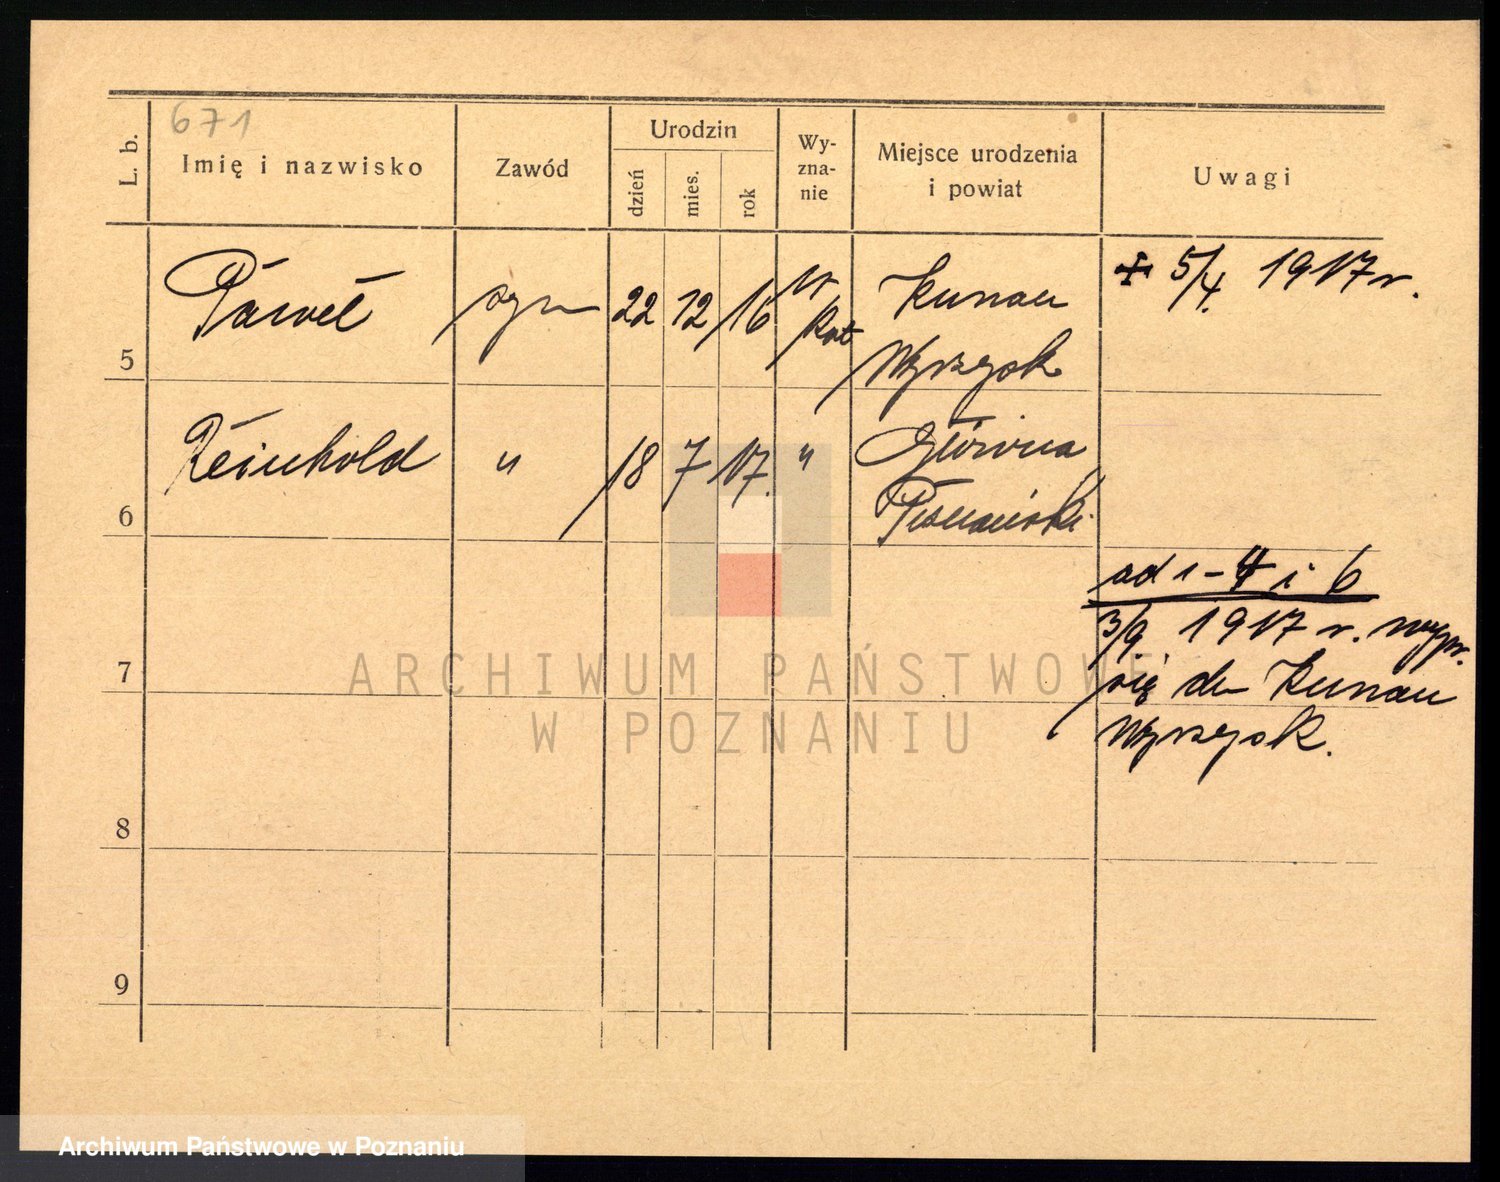 671
L. b.
Imię i nazwisko
Zawód
Urodzin
dzień
mies.
rok
Wy-
zna-
nie
Miejsce urodzenia
i powiat
Uwagi
5
Paweł
syn
22
12
16
kat
Kunau
Wyrzysk
+ 5/4. 1917 r.
6
Reinhold
"
18
7
17.
"
Główna
Poznański
ad 1-4 i 6
3/9. 1917 r. wypr.
się do Kunau
Wyrzysk.
7
8
9
ARCHIWUM PAŃSTWOWE
W POZNANIU
Archiwum Państwowe w Poznaniu